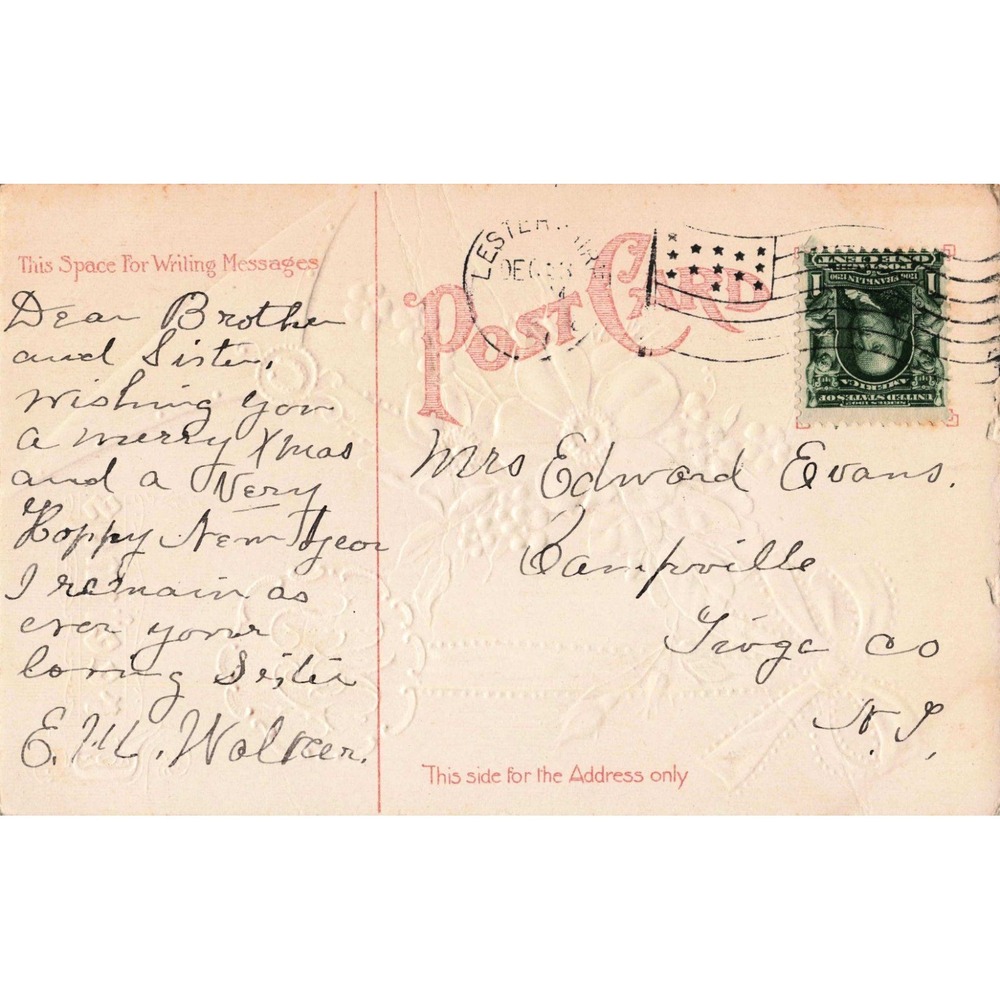 This Space For Writing Messages
Dear Brother
and Sister,
wishing you
a merry Xmas
and a Very
Happy New Year
I remain as
ever your
loving Sister
E. M. Walker.
POST CARD
LESTER
DEC
1
ONE CENT
POSTAGE
1706 FRANKLIN 1790
1
SERIES 1902
UNITED STATES OF
AMERICA
Mrs Edward Evans.
Campville
Tioga co
N. Y.
This side for the Address only